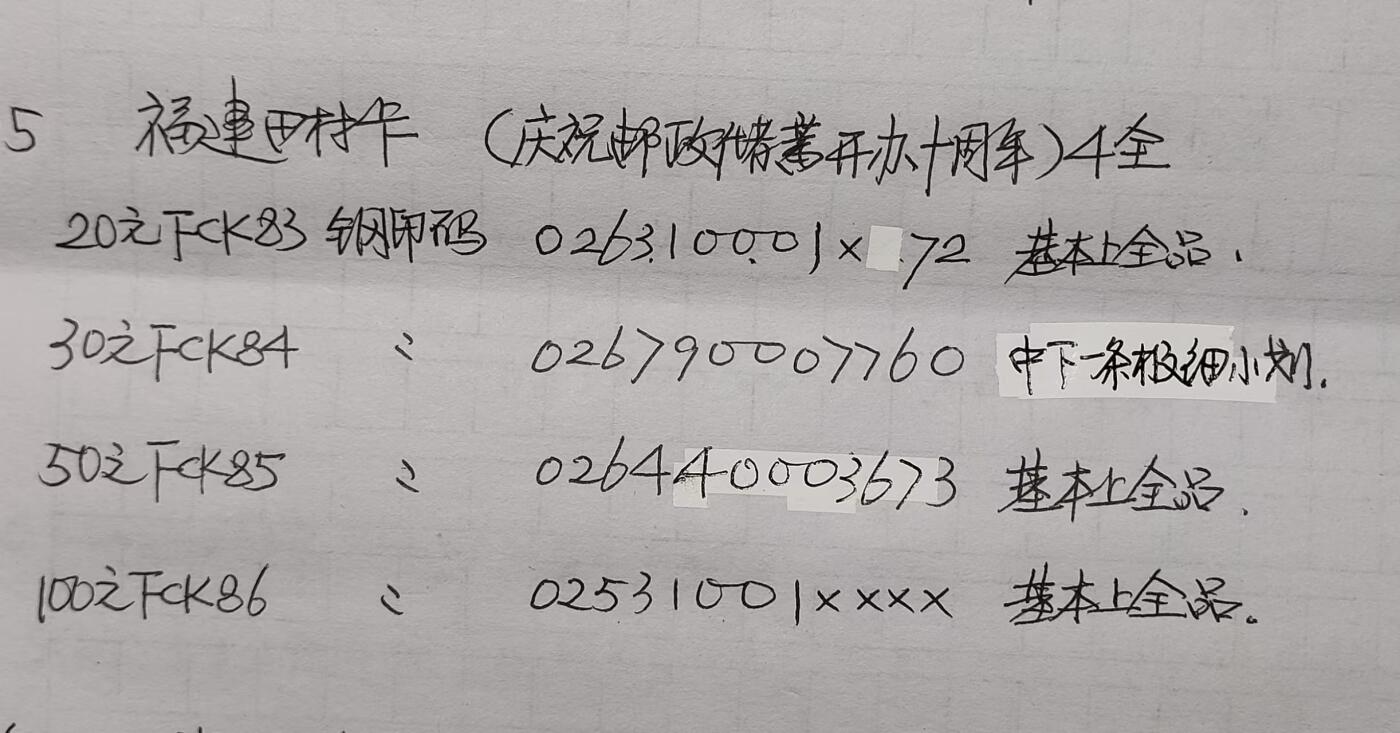 5 福建田村卡 (庆祝邮政储蓄开办十周年) 4全
20元FCK83 钢印码 0263100001× 72 基本上全品.
30元FCK84 〃 026790007760 中下一条极细小划.
50元FCK85 〃 026440003673 基本上全品.
100元FCK86 〃 02531001×××× 基本上全品。